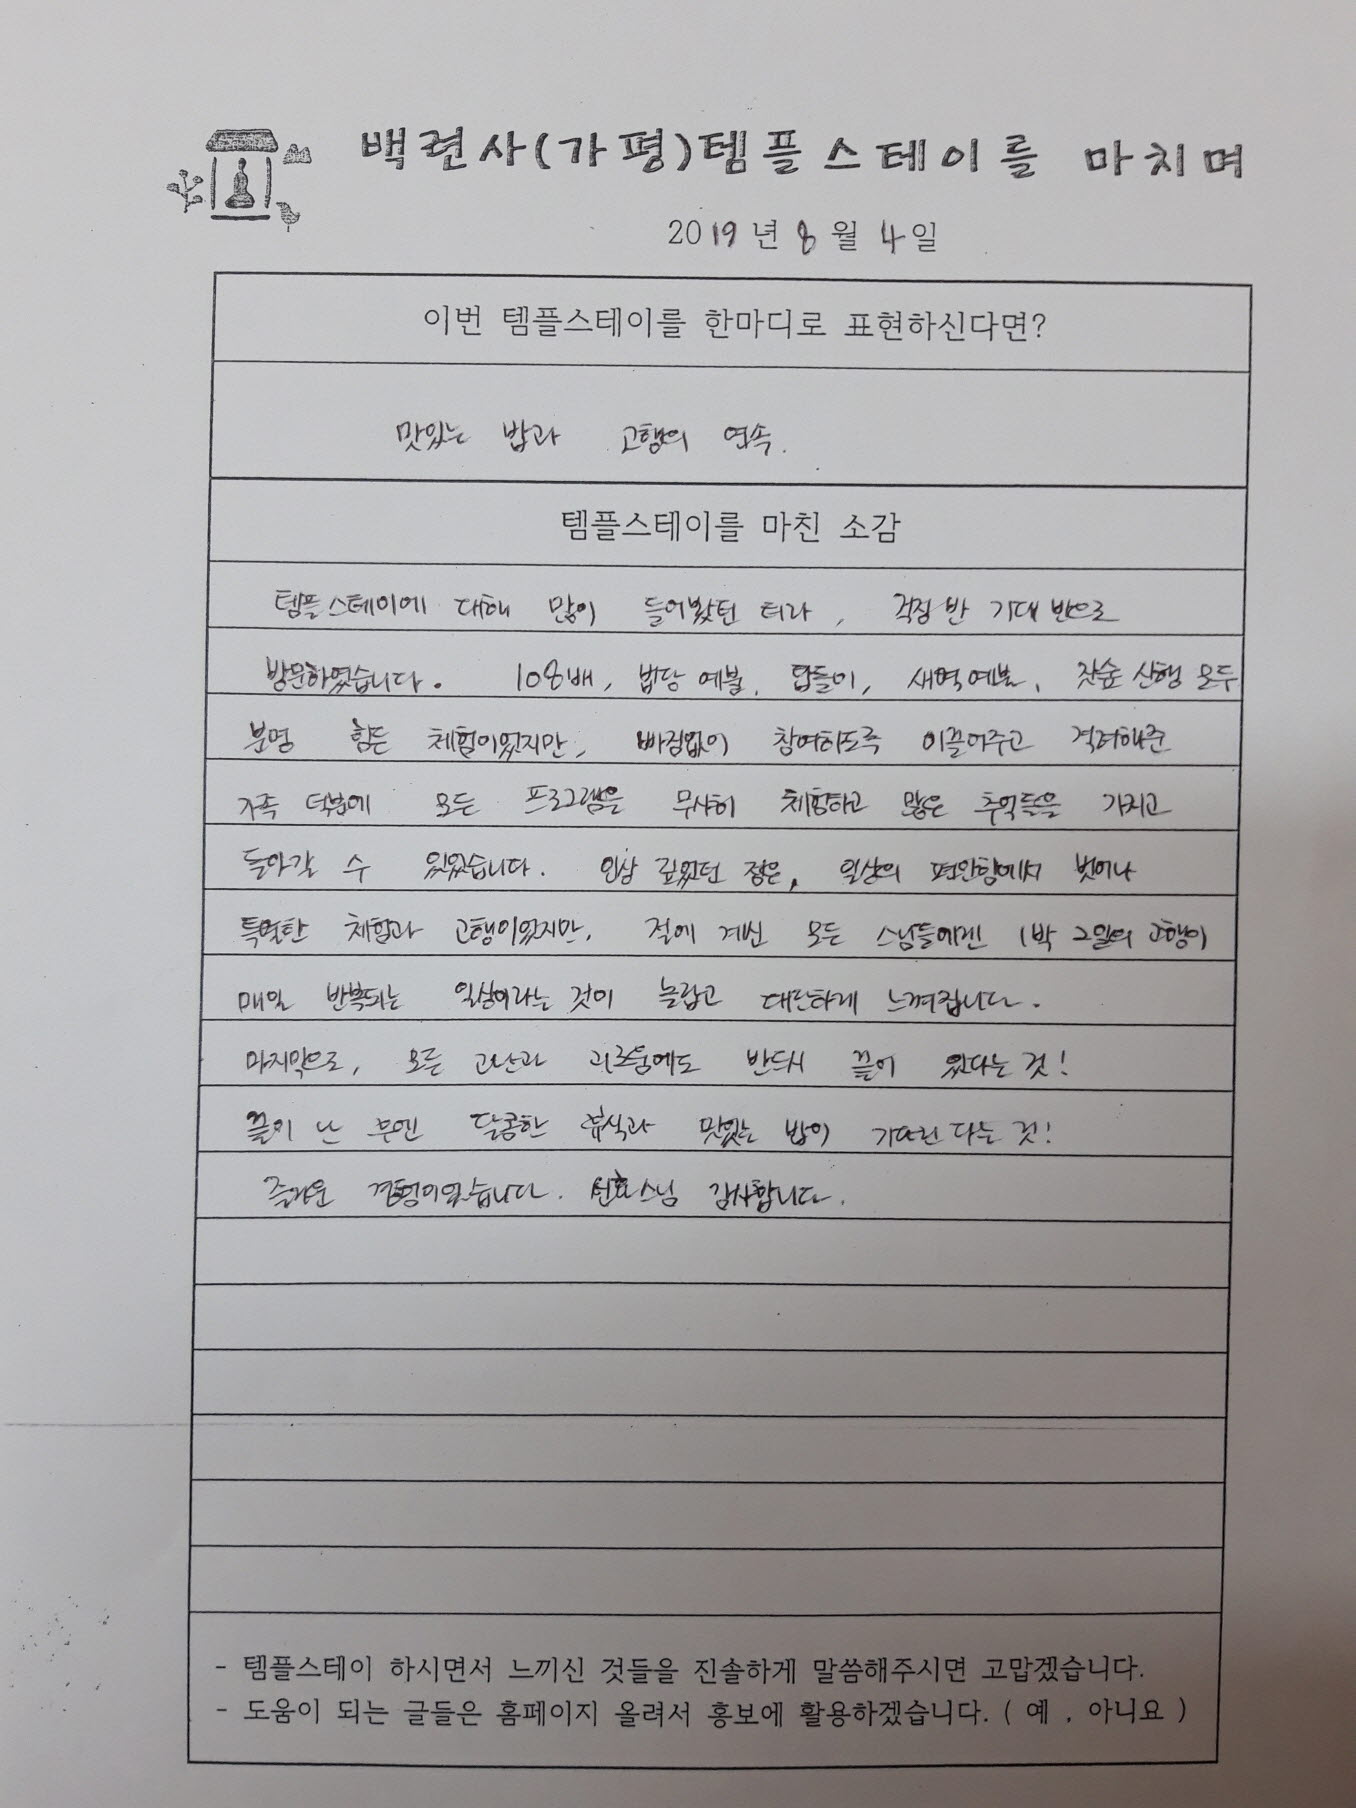 백련사(가평)템플스테이를 마치며
2019년 8월 4일
이번 템플스테이를 한마디로 표현하신다면?
맛있는 밥과 고행의 연속.
템플스테이를 마친 소감
템플스테이에 대해 많이 들어봤던 터라, 걱정 반 기대 반으로
방문하였습니다. 108배, 법당 예불, 탑돌이, 새벽예불, 잣숲 산행 모두
분명 힘든 체험이었지만, 빠짐없이 참여하도록 이끌어주고 격려해준
가족 덕분에 모든 프로그램을 무사히 체험하고 많은 추억들을 가지고
돌아갈 수 있었습니다. 인상 깊었던 점은, 일상의 편안함에서 벗어나
특별한 체험과 고행이었지만, 절에 계신 모든 스님들에겐 1박 2일의 고행이
매일 반복되는 일상이라는 것이 놀랍고 대단하게 느껴집니다.
마지막으로, 모든 고난과 괴로움에도 반드시 끝이 있다는 것!
끝이 난 후엔 달콤한 휴식과 맛있는 밥이 기다린다는 것!
즐거운 경험이었습니다. 스님 감사합니다.
- 템플스테이 하시면서 느끼신 것들을 진솔하게 말씀해주시면 고맙겠습니다.
- 도움이 되는 글들은 홈페이지 올려서 홍보에 활용하겠습니다. ( 예 , 아니요 )